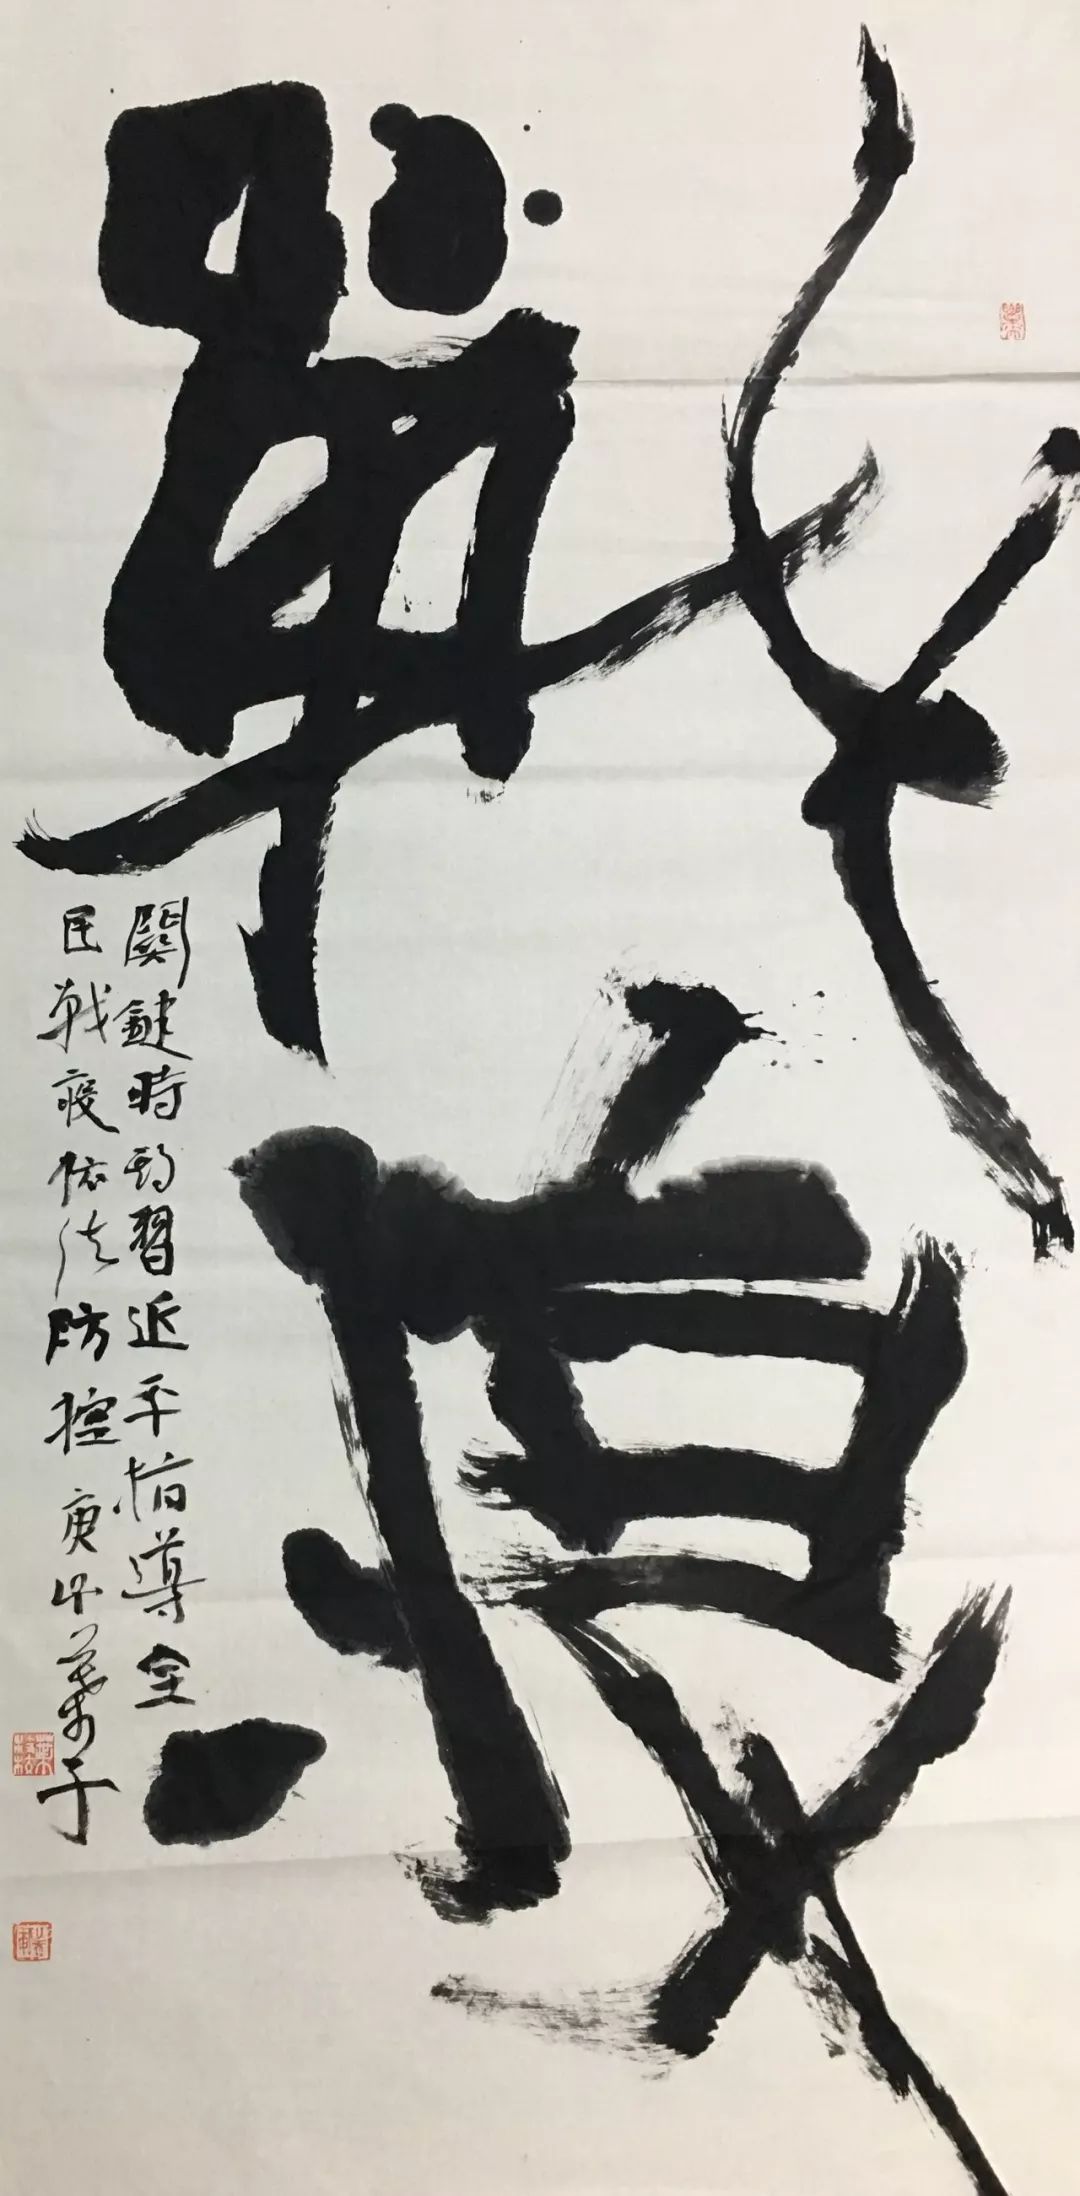 戰疫
關鍵時刻習近平指導全
民戰疫依法防控 庚子葉子